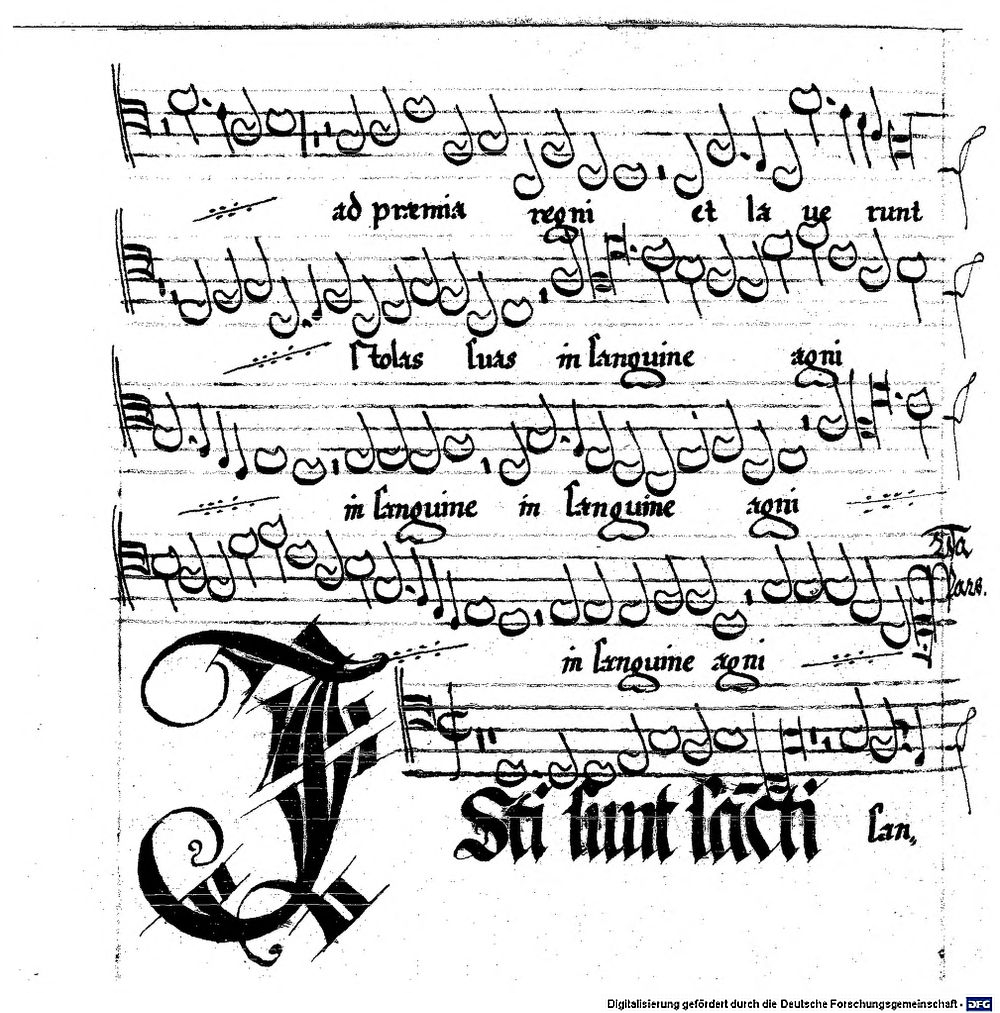 ad præmia regni et la ue runt
stolas suas in sanguine agni
in sanguine in sanguine agni
2da
Pars.
in sanguine agni
Isti sunt sācti san,
Digitalisierung gefördert durch die Deutsche Forschungsgemeinschaft - DFG